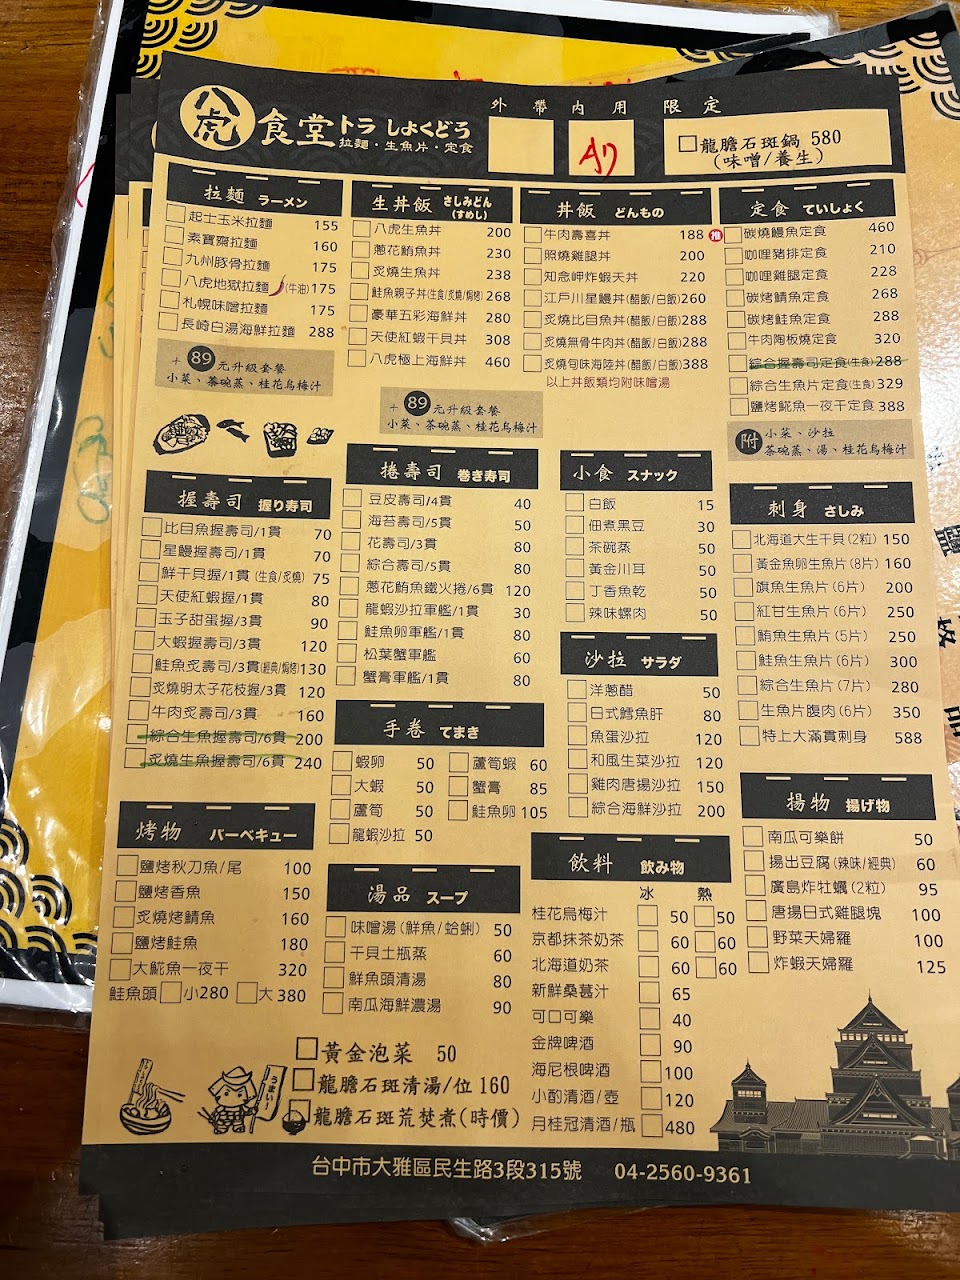 八虎
食堂 トラ しょくどう
拉麵・生魚片・定食
外帶 內用 限定
A7
龍膽石斑鍋 580
(味噌/養生)
拉麵 ラーメン
起士玉米拉麵 155
素寶齋拉麵 160
九州豚骨拉麵 175
八虎地獄拉麵 (牛油) 175
札幌味噌拉麵 175
長崎白湯海鮮拉麵 288
+ 89 元升級套餐
小菜、茶碗蒸、桂花烏梅汁
生丼飯 さしみどん
(すめし)
八虎生魚丼 200
蔥花鮪魚丼 230
炙燒生魚丼 238
鮭魚親子丼(生食/炙燒/焗烤) 268
豪華五彩海鮮丼 280
天使紅蝦干貝丼 308
八虎極上海鮮丼 460
+ 89 元升級套餐
小菜、茶碗蒸、桂花烏梅汁
丼飯 どんもの
牛肉壽喜丼 188 推
照燒雞腿丼 200
知念岬炸蝦天丼 220
江戶川星鰻丼(醋飯/白飯) 260
炙燒比目魚丼(醋飯/白飯) 288
炙燒無骨牛肉丼(醋飯/白飯) 288
炙燒旬味海陸丼(醋飯/白飯) 388
以上丼飯類均附味噌湯
定食 ていしょく
碳燒鰻魚定食 460
咖哩豬排定食 210
咖哩雞腿定食 228
碳烤鯖魚定食 268
碳烤鮭魚定食 288
牛肉陶板燒定食 320
綜合握壽司定食(生食) 288
綜合生魚片定食(生食) 329
鹽烤魠魚一夜干定食 388
附 小菜、沙拉
茶碗蒸、湯、桂花烏梅汁
握壽司 握り寿司
比目魚握壽司/1貫 70
星鰻握壽司/1貫 70
鮮干貝握/1貫 (生食/炙燒) 75
天使紅蝦握/1貫 80
玉子甜蛋握/3貫 90
大蝦握壽司/3貫 120
鮭魚炙壽司/3貫(經典/焗烤) 130
炙燒明太子花枝握/3貫 120
牛肉炙壽司/3貫 160
綜合生魚握壽司/6貫 200
炙燒生魚握壽司/6貫 240
捲壽司 巻き寿司
豆皮壽司/4貫 40
海苔壽司/5貫 50
花壽司/3貫 80
綜合壽司/5貫 80
蔥花鮪魚鐵火捲/6貫 120
龍蝦沙拉軍艦/1貫 30
鮭魚卵軍艦/1貫 80
松葉蟹軍艦 60
蟹膏軍艦/1貫 80
小食 スナック
白飯 15
佃煮黑豆 30
茶碗蒸 50
黃金川耳 50
丁香魚乾 50
辣味螺肉 50
刺身 さしみ
北海道大生干貝(2粒) 150
黃金魚卵生魚片(8片) 160
旗魚生魚片(6片) 200
紅甘生魚片(6片) 250
鮪魚生魚片(5片) 250
鮭魚生魚片(6片) 300
綜合生魚片(7片) 280
生魚片腹肉(6片) 350
特上大滿貫刺身 588
沙拉 サラダ
洋蔥醋 50
日式鱈魚肝 80
魚蛋沙拉 120
和風生菜沙拉 120
雞肉唐揚沙拉 150
綜合海鮮沙拉 200
手卷 てまき
蝦卵 50 蘆筍蝦 60
大蝦 50 蟹膏 85
蘆筍 50 鮭魚卵 105
龍蝦沙拉 50
烤物 バーベキュー
鹽烤秋刀魚/尾 100
鹽烤香魚 150
炙燒烤鯖魚 160
鹽烤鮭魚 180
大魠魚一夜干 320
鮭魚頭 小280 大380
湯品 スープ
味噌湯(鮮魚/蛤蜊) 50
干貝土瓶蒸 60
鮮魚頭清湯 80
南瓜海鮮濃湯 90
飲料 飲み物
冰 熱
桂花烏梅汁 50 50
京都抹茶奶茶 60 60
北海道奶茶 60 60
新鮮桑葚汁 65
可口可樂 40
金牌啤酒 90
海尼根啤酒 100
小酌清酒/壺 120
月桂冠清酒/瓶 480
揚物 揚げ物
南瓜可樂餅 50
揚出豆腐(辣味/經典) 60
廣島炸牡蠣(2粒) 95
唐揚日式雞腿塊 100
野菜天婦羅 100
炸蝦天婦羅 125
黃金泡菜 50
龍膽石斑清湯/位 160
龍膽石斑荒焚煮(時價)
うまい!
台中市大雅區民生路3段315號 04-2560-9361